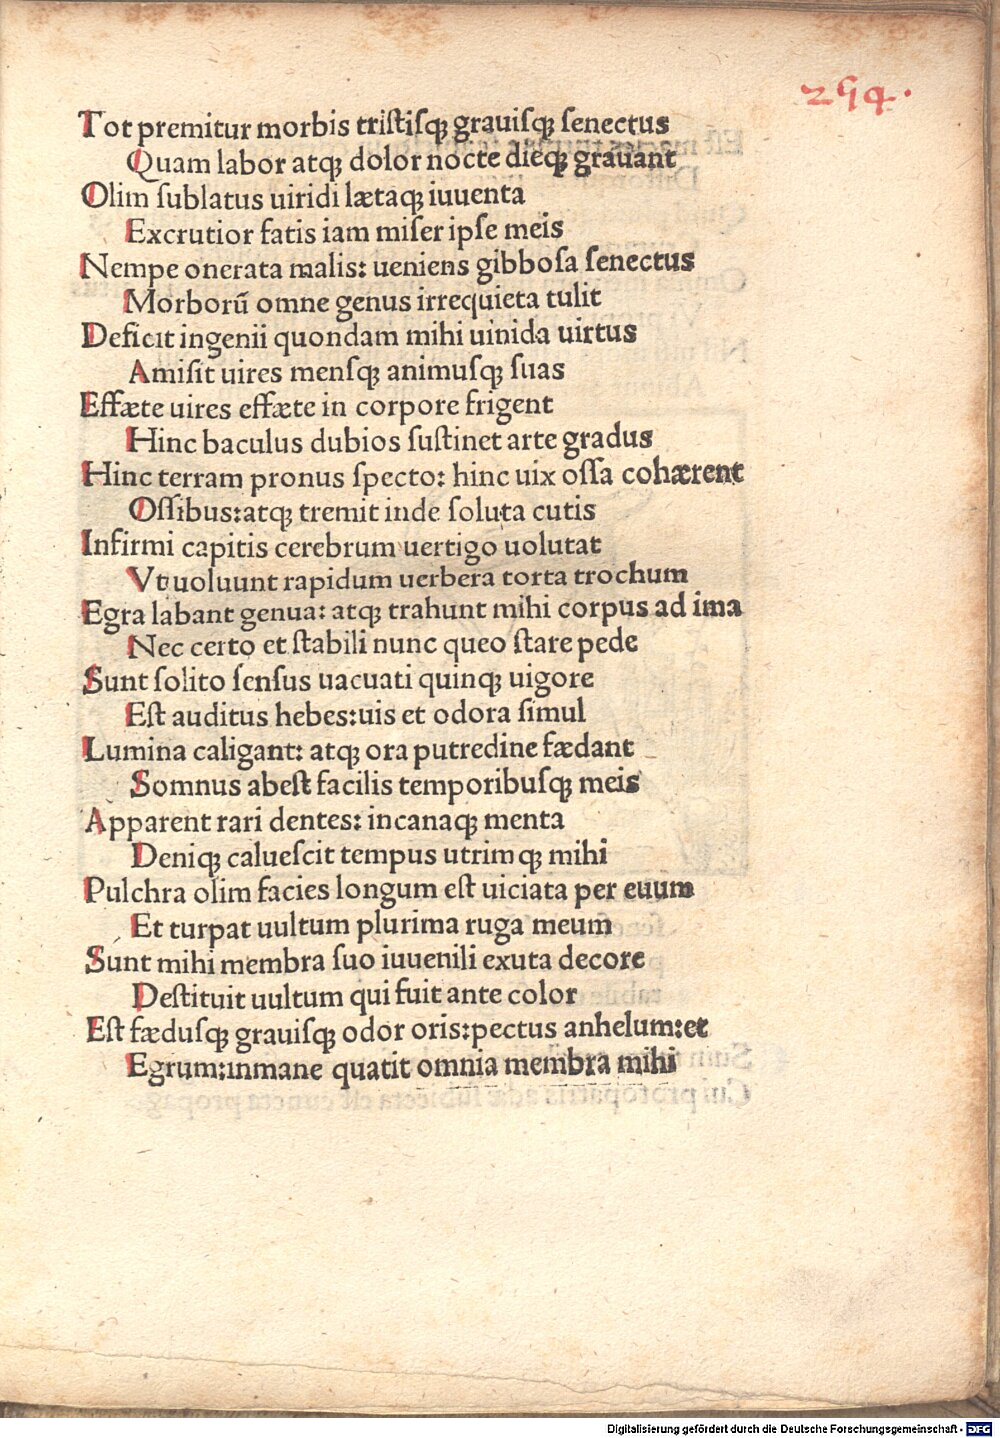 294.
Tot premitur morbis tristisqꝫ grauisqꝫ senectus
Quam labor atqꝫ dolor nocte dieqꝫ grauant
Olim sublatus uiridi lætaqꝫ iuuenta
Excrutior fatis iam miser ipse meis
Nempe onerata malis: ueniens gibbosa senectus
Morborū omne genus irrequieta tulit
Deficit ingenii quondam mihi uinida uirtus
Amisit uires mensqꝫ animusqꝫ suas
Effæte uires effæte in corpore frigent
Hinc baculus dubios sustinet arte gradus
Hinc terram pronus specto: hinc uix ossa cohærent
Ossibus: atqꝫ tremit inde soluta cutis
Infirmi capitis cerebrum uertigo uolutat
Vt uoluunt rapidum uerbera torta trochum
Egra labant genua: atqꝫ trahunt mihi corpus ad ima
Nec certo et stabili nunc queo stare pede
Sunt solito sensus uacuati quinqꝫ uigore
Est auditus hebes: uis et odora simul
Lumina caligant: atqꝫ ora putredine fædant
Somnus abest facilis temporibusqꝫ meis
Apparent rari dentes: incanaqꝫ menta
Deniqꝫ caluescit tempus utrimqꝫ mihi
Pulchra olim facies longum est uiciata per euum
Et turpat uultum plurima ruga meum
Sunt mihi membra suo iuuenili exuta decore
Destituit uultum qui fuit ante color
Est fædusqꝫ grauisqꝫ odor oris: pectus anhelum: et
Egrum: inmane quatit omnia membra mihi
Digitalisierung gefördert durch die Deutsche Forschungsgemeinschaft - DFG